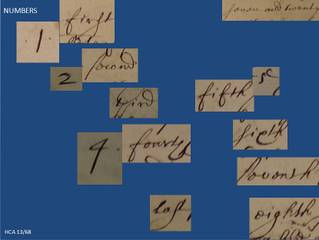 NUMBERS
seven and twenty
first
1
second
2
third
fifth
5
4
fourth
sixth
seventh
last
eighth
HCA 13/68